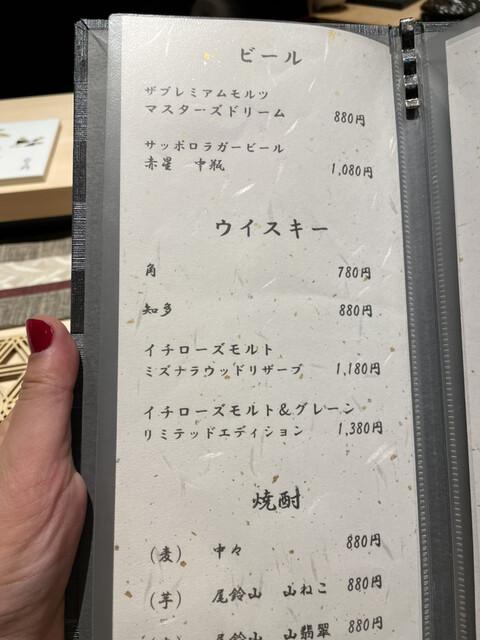 ビール
ザプレミアムモルツ
マスターズドリーム 880円
サッポロラガービール
赤星 中瓶 1,080円
ウイスキー
角 780円
知多 880円
イチローズモルト
ミズナラウッドリザーブ 1,180円
イチローズモルト&グレーン
リミテッドエディション 1,380円
焼酎
(麦) 中々 880円
(芋) 尾鈴山 山ねこ 880円
尾鈴山 山翡翠 880円